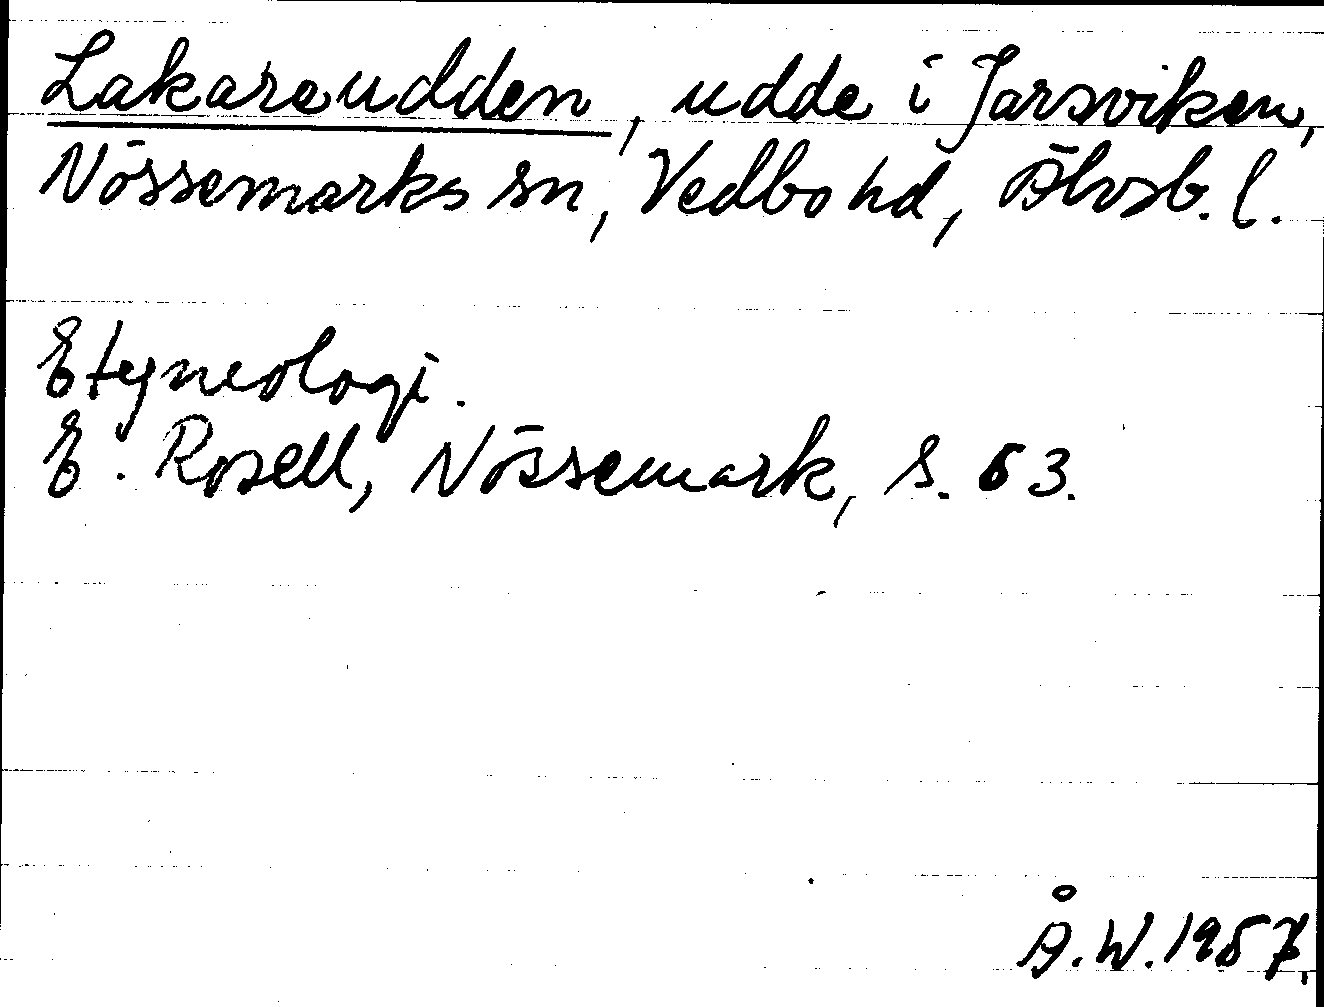 Lakareudden, udde i Jarsviken,
Nössemarks sn, Vedbo hd, Älvsb. l.
Etymologi.
E. Rosell, Nössemark, s. 53.
Å.W. 1957.